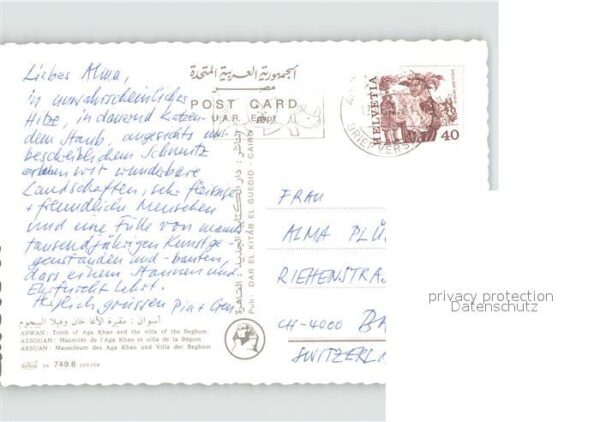 Liebes Alma,
in unwahrscheinlicher
Hitze, in dauernd
dem Staub, angesichts
Schmutz
erleben wir wunderbare
Landschaften, sehr fleissige
+ freundliche Menschen
und eine Fülle von
tausendjährigen Kunstge
genständen und -bauten,
dass einem Staunen und
Ehrfurcht lehrt.
Herzlich grüssen Pia +
الجمهورية العربية المتحدة
مصر
POST CARD
U.A.R. Egypt
HELVETIA
40
BRIEFVERS
الناشر : دار الكتاب الجديد : القاهرة
Pub : DAR EL KITAB EL GUEDID : CAIRO
FRAU
ALMA PLÜ
RIEHENSTRA
CH-4000 BA
SWITZERL
privacy protection
Datenschutz
أسوان : مقبرة الأغا خان وفيلا البيجوم
ASWAN - Tomb of Aga Khan and the villa of the Beghum
ASSOUAN - Mausolée de l'Aga Khan et villa de la Bégum
ASSUAN - Mausoleum des Aga Khan und Villa der Beghum
749.8